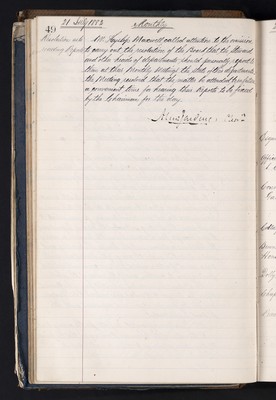 49
31 July 1883 Monthly
Resolution as to
receiving Reports
Mr. Heyslop Maxwell called attention to the omission
to carry out the resolution of the Board that the Steward
and other heads of departments should personally report to
them at their Monthly Meetings the state of their departments.
the Meeting resolved that the matter be attended to in future
a convenient time for hearing these reports to be fixed
by the Chairman for the day.